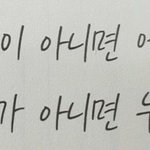 이 아니면
가 아니면